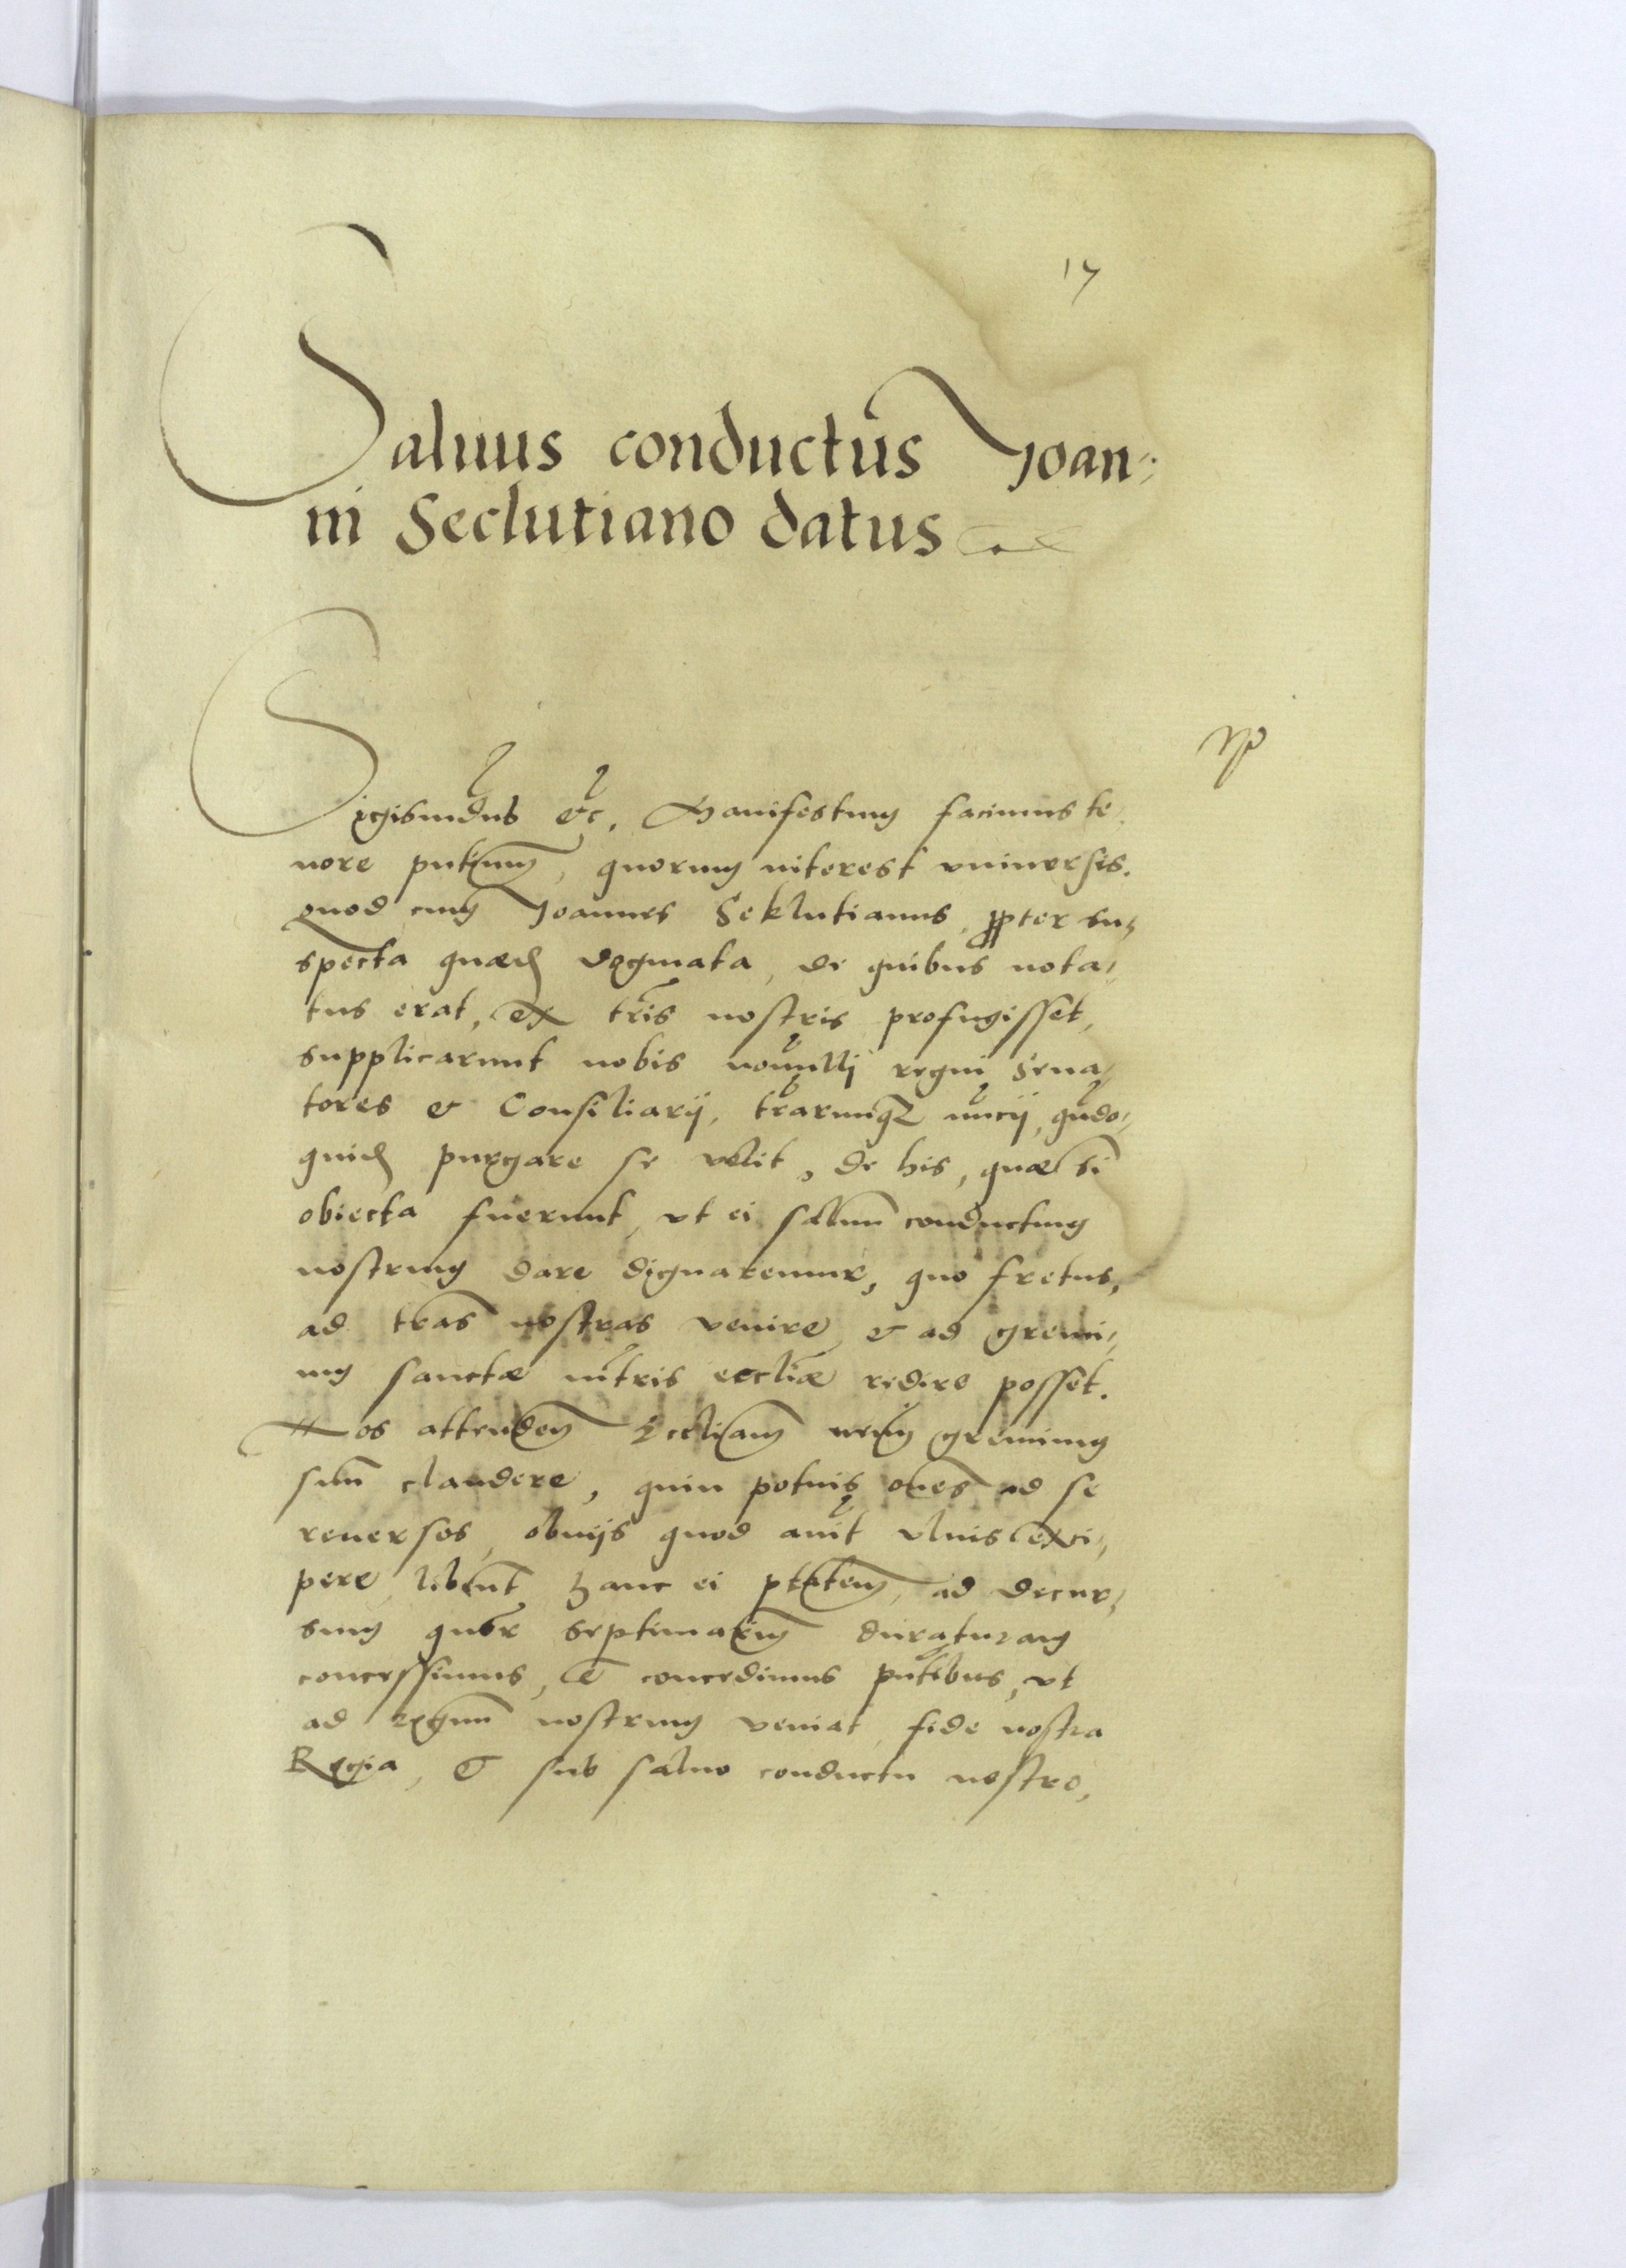 17
Saluus conductus Joan:
ni Seclutiano datus
Sigismūdus etc. Manifestum facimus te
nore pntium, quorum interest vniuersis.
quod cum Joannes Seklutianus, propter su,
specta quaedam dogmata, de quibus nota,
tus erat, ex tris nostris profugisset,
supplicarunt nobis nonnulli regni Sena,
tores et Consiliarij, trarumque nuncij, qudo,
quidem purgare se velit, de his, quae si
obiecta fuerunt, vt ei saluum conductum
nostrum dare dignaremur, quo fretus,
ad tras nostras venire, et ad gremi,
um sanctae mtris eccliae redire posset.
Nos attenden Eccliam gremium
suum claudere, quin potius oēs ad se
reuersos, obuijs quod aiūt vlnis exci,
pere, libent hanc ei ptatem, ad decur,
sum septimarum duraturam
concessimus, et concedimus pntibus, vt
ad regnum nostrum veniat, fide nostra
Regia, et sub saluo conductu nostro,